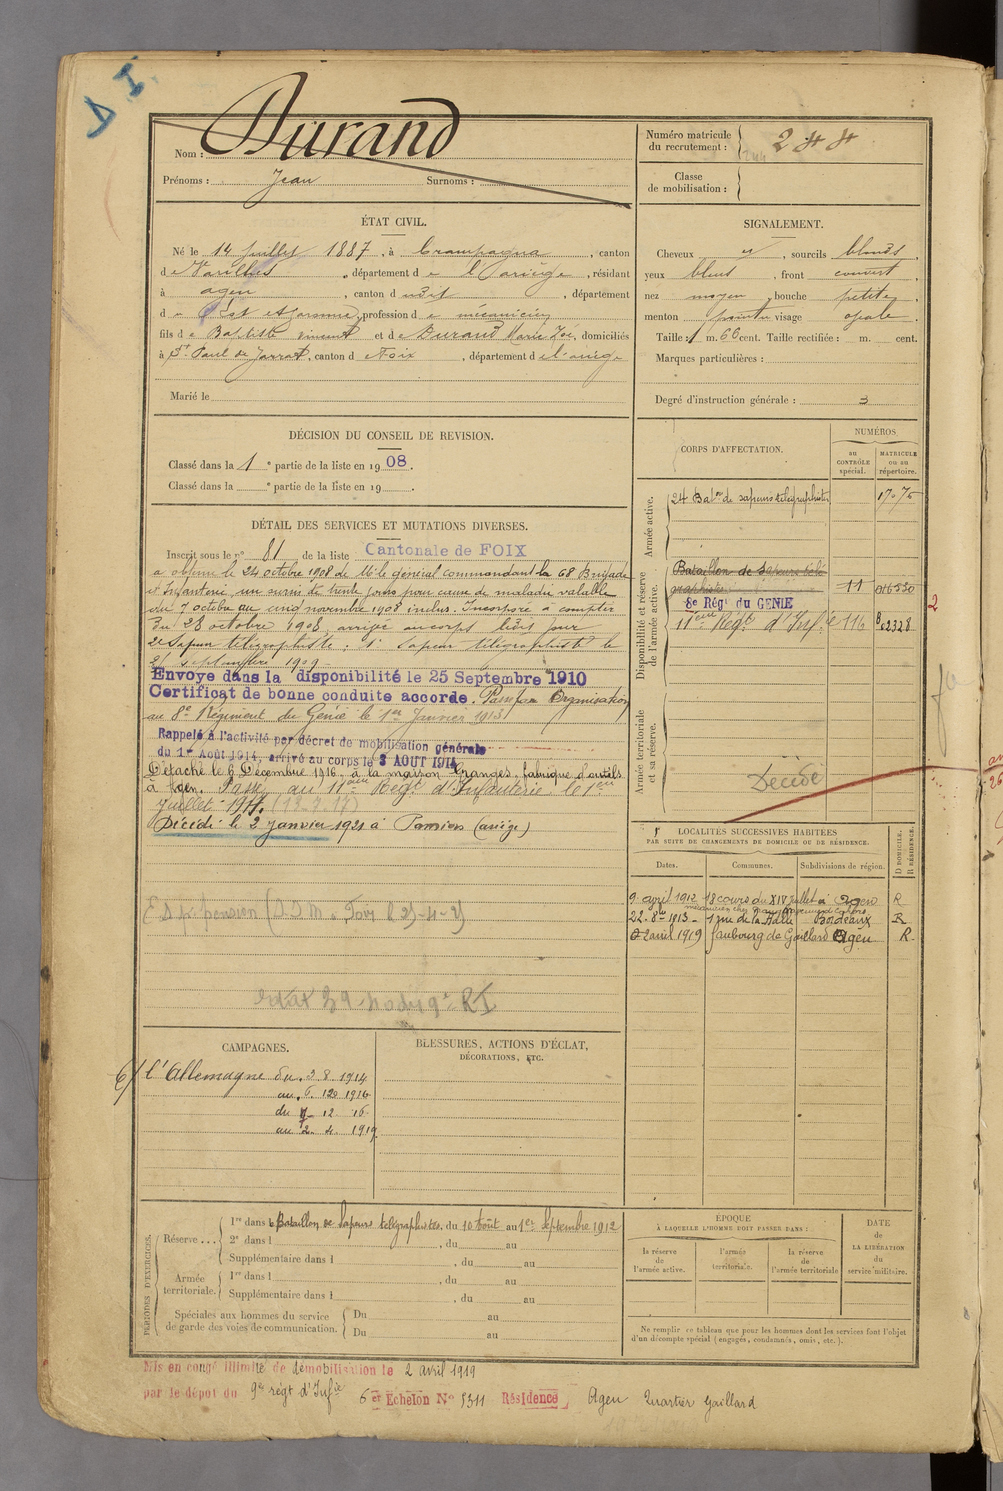 D I.
Nom : Durand
Prénoms : Jean Surnoms :
Numéro matricule du recrutement : 244
Classe de mobilisation :
ÉTAT CIVIL.
Né le 14 juillet 1887, à Crampagna, canton
de Varilhes, département de l'Ariège, résidant
à Agen, canton dudit, département
de Lot et Garonne, profession de mécanicien
fils de Baptiste Vincent et de Durand Marie Zoé, domiciliés
à St Paul de Jarrat, canton de Foix, département de l'ariège
Marié le
SIGNALEMENT.
Cheveux et, sourcils blonds,
yeux bleus, front couvert
nez moyen, bouche petite,
menton pointu visage ovale.
Taille : 1 m. 66 cent. Taille rectifiée : m. cent.
Marques particulières :
Degré d'instruction générale : 3
DÉCISION DU CONSEIL DE REVISION.
Classé dans la 1e partie de la liste en 1908.
Classé dans la e partie de la liste en 19 .
DÉTAIL DES SERVICES ET MUTATIONS DIVERSES.
Inscrit sous le n° 81 de la liste Cantonale de FOIX
a obtenu le 24 octobre 1908 de Mr le général commandant la 68 Brigade
d'Infanterie, un sursis de trente jours pour cause de maladie valable
du 7 octobre au cinq novembre 1908 inclus. Incorporé à compter
du 28 octobre 1908, arrivé au corps ledit jour
2e Sapeur télégraphiste. 1r Sapeur télégraphiste le
21 septembre 1909
Envoyé dans la disponibilité le 25 Septembre 1910
Certificat de bonne conduite accordé. Passé par Organisation
au 8e Régiment du Génie le 1er Janvier 1913
Rappelé à l'activité par décret de mobilisation générale
du 1er Août 1914, arrivé au corps le 3 AOUT 1914
Détaché le 6 Décembre 1916, à la maison Granges, fabrique d'outils
à Agen. Passé au 11ème Régt d'Infanterie le 1er
juillet 1917. (13-7-17)
Décédé le 2 janvier 1921 à Pamiers (ariège)
CORPS D'AFFECTATION.
NUMÉROS
au CONTRÔLE spécial.
MATRICULE ou au répertoire.
Armée active.
24 Baton de sapeurs télégraphistes 1707
Disponibilité et réserve de l'armée active.
Bataillon de Sapeurs télégraphistes
8e Régt du GENIE 11 016550
11ème Régt d'Inf.ie 116 2328
Armée territoriale et sa réserve.
Décédé
LOCALITÉS SUCCESSIVES HABITÉES
PAR SUITE DE CHANGEMENTS DE DOMICILE OU DE RÉSIDENCE.
D DOMICILE. R RÉSIDENCE.
Dates. Communes. Subdivisions de région.
9 avril 1912 18 cours du XIV juillet à Agen R
22-8bre 1913 - 1 rue de la Halle Bordeaux R
2 avril 1919 faubourg de Gaillard Agen R.
CAMPAGNES.
C/ l'Allemagne du 3.8.1914
au 6. 12 1916
du 7- 12. 16
au 2- 4. 1919
BLESSURES, ACTIONS D'ÉCLAT,
DÉCORATIONS, ETC.
PÉRIODES D'EXERCICES.
Réserve... 1re dans le Bataillon de Sapeurs télégraphistes, du 10 Août au 1er Septembre 1912
2e dans l , du au
Supplémentaire dans l , du au
Armée territoriale. 1re dans l , du au
Supplémentaire dans l , du au
Spéciales aux hommes du service de garde des voies de communication. Du au
Du au
ÉPOQUE
À LAQUELLE L'HOMME DOIT PASSER DANS :
la réserve de l'armée active.
l'armée territoriale.
la réserve de l'armée territoriale
DATE de LA LIBÉRATION du service militaire.
Ne remplir ce tableau que pour les hommes dont les services font l'objet
d'un décompte spécial (engagés, condamnés, omis, etc.).
Mis en congé illimité de démobilisation le 2 avril 1919
par le dépôt du 9e régt d'Infie 6e Echelon N° 5311 Résidence Agen Quartier Gaillard